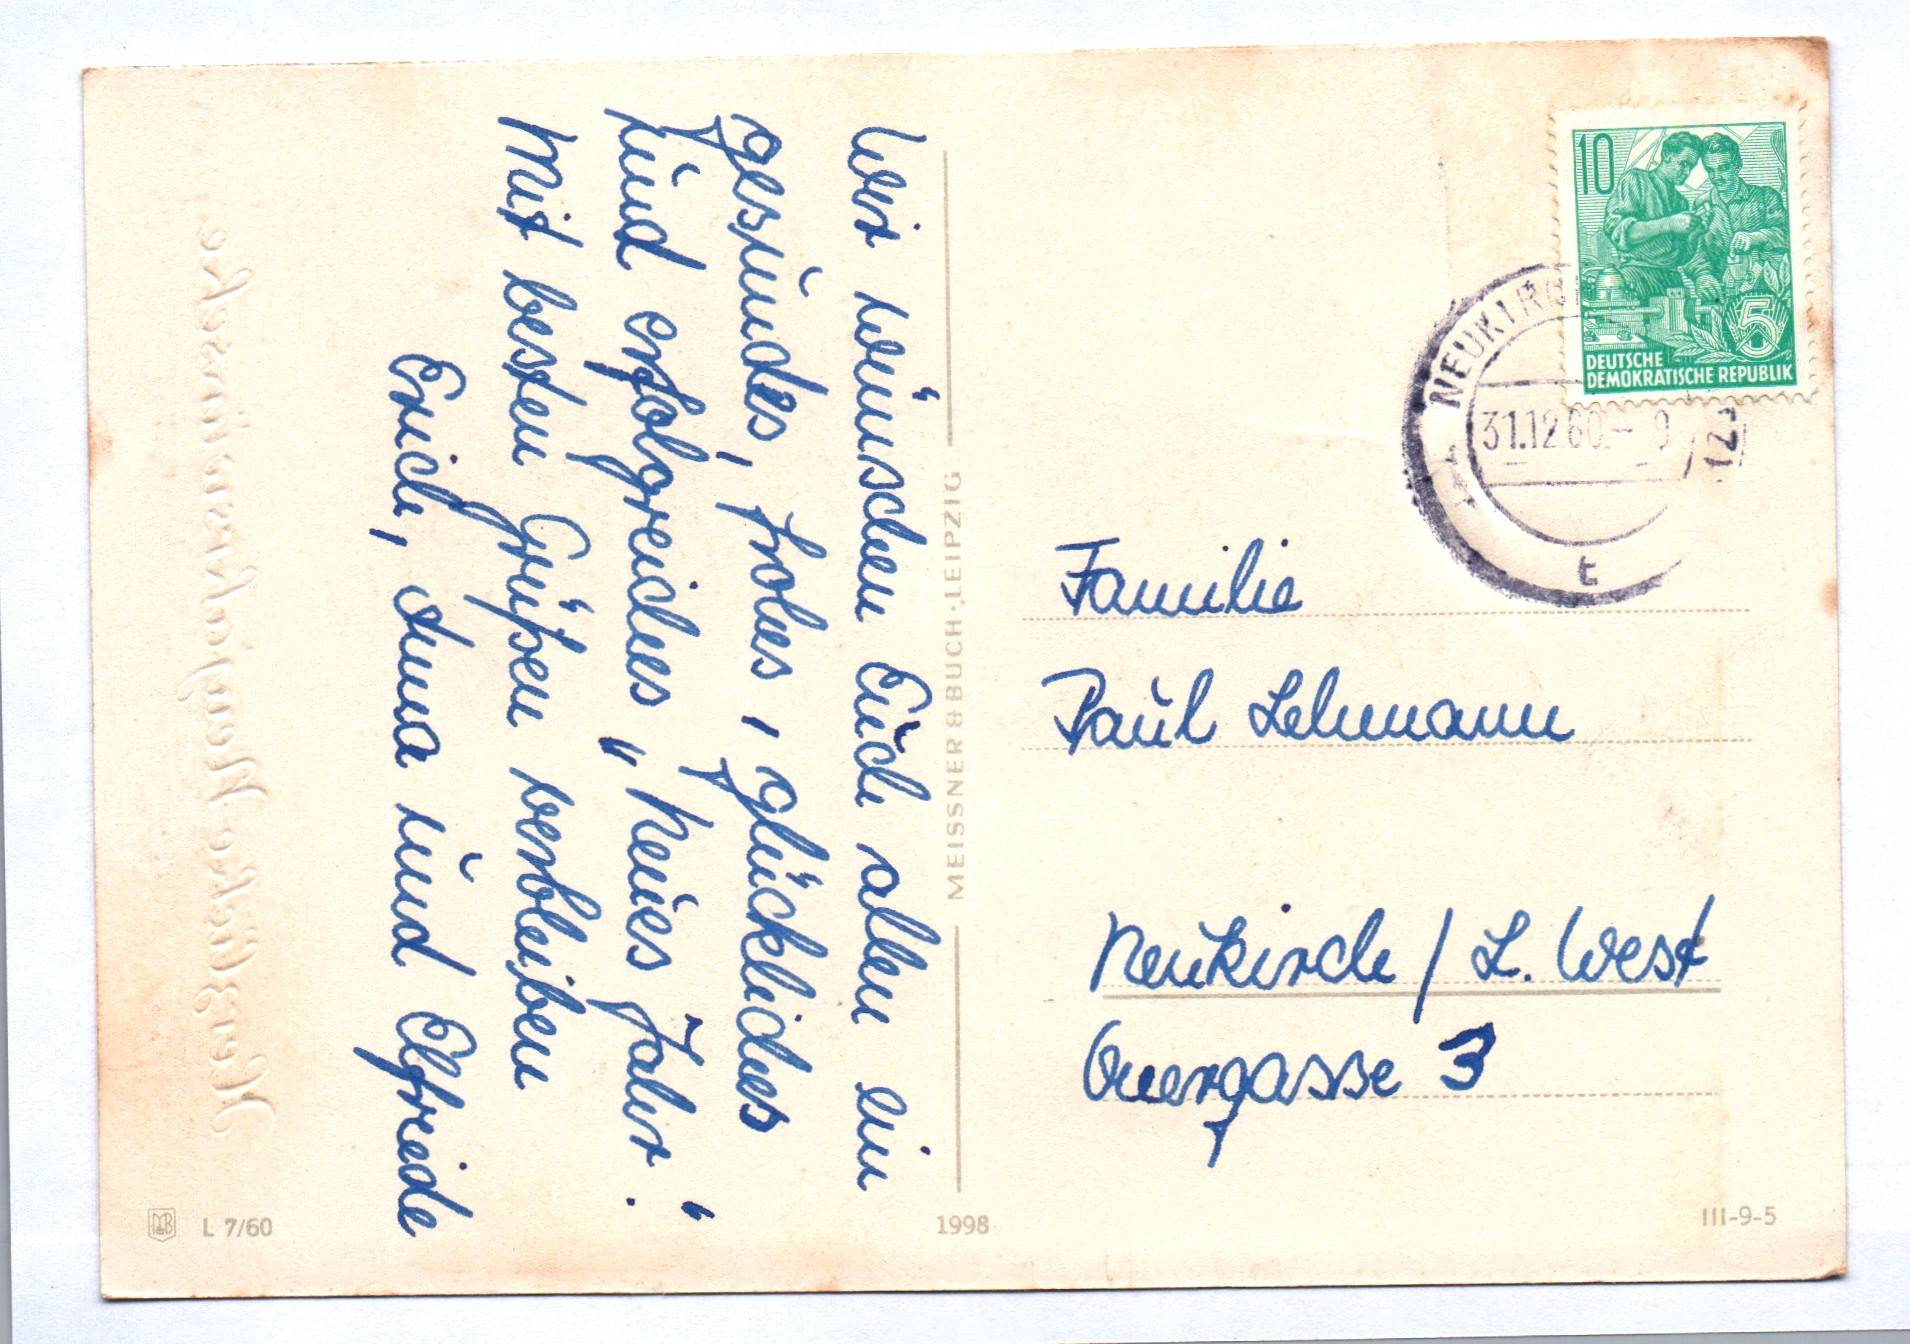 Wir wünschen Euch allen ein
gesundes, frohes, glückliches
und erfolgreiches „Neues Jahr“.
Mit besten Grüßen verbleiben
Erich, Anna und Elfriede
Herzliche Neujahrswünsche
MEISSNER & BUCH · LEIPZIG
10
5
DEUTSCHE
DEMOKRATISCHE REPUBLIK
31.12.60.- 9
t
Familie
Paul Lehmann
Neukirch / L. West
Quergasse 3
L 7/60
1998
III-9-5